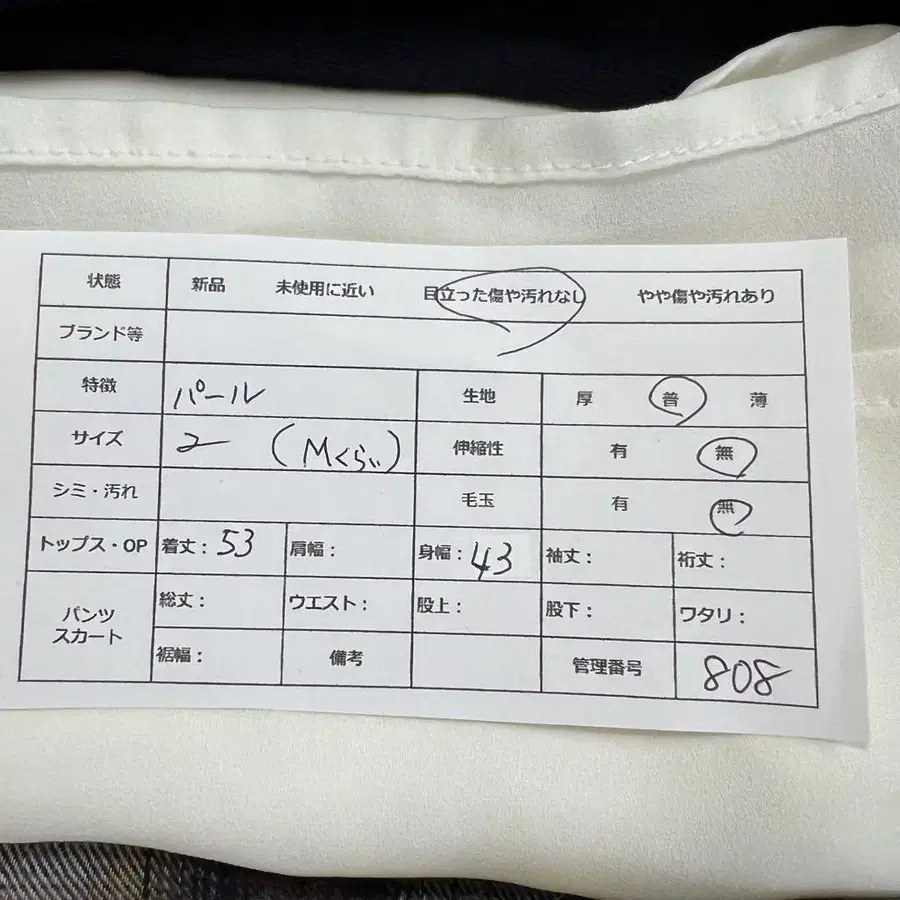 状態 新品 未使用に近い 目立った傷や汚れなし やや傷や汚れあり
ブランド等
特徴 パール 生地 厚 普 薄
サイズ 2 (Mくらい) 伸縮性 有 無
シミ・汚れ 毛玉 有 無
トップス・OP 着丈：53 肩幅： 身幅：43 袖丈： 裄丈：
パンツ スカート 総丈： ウエスト： 股上： 股下： ワタリ：
裾幅： 備考 管理番号 808